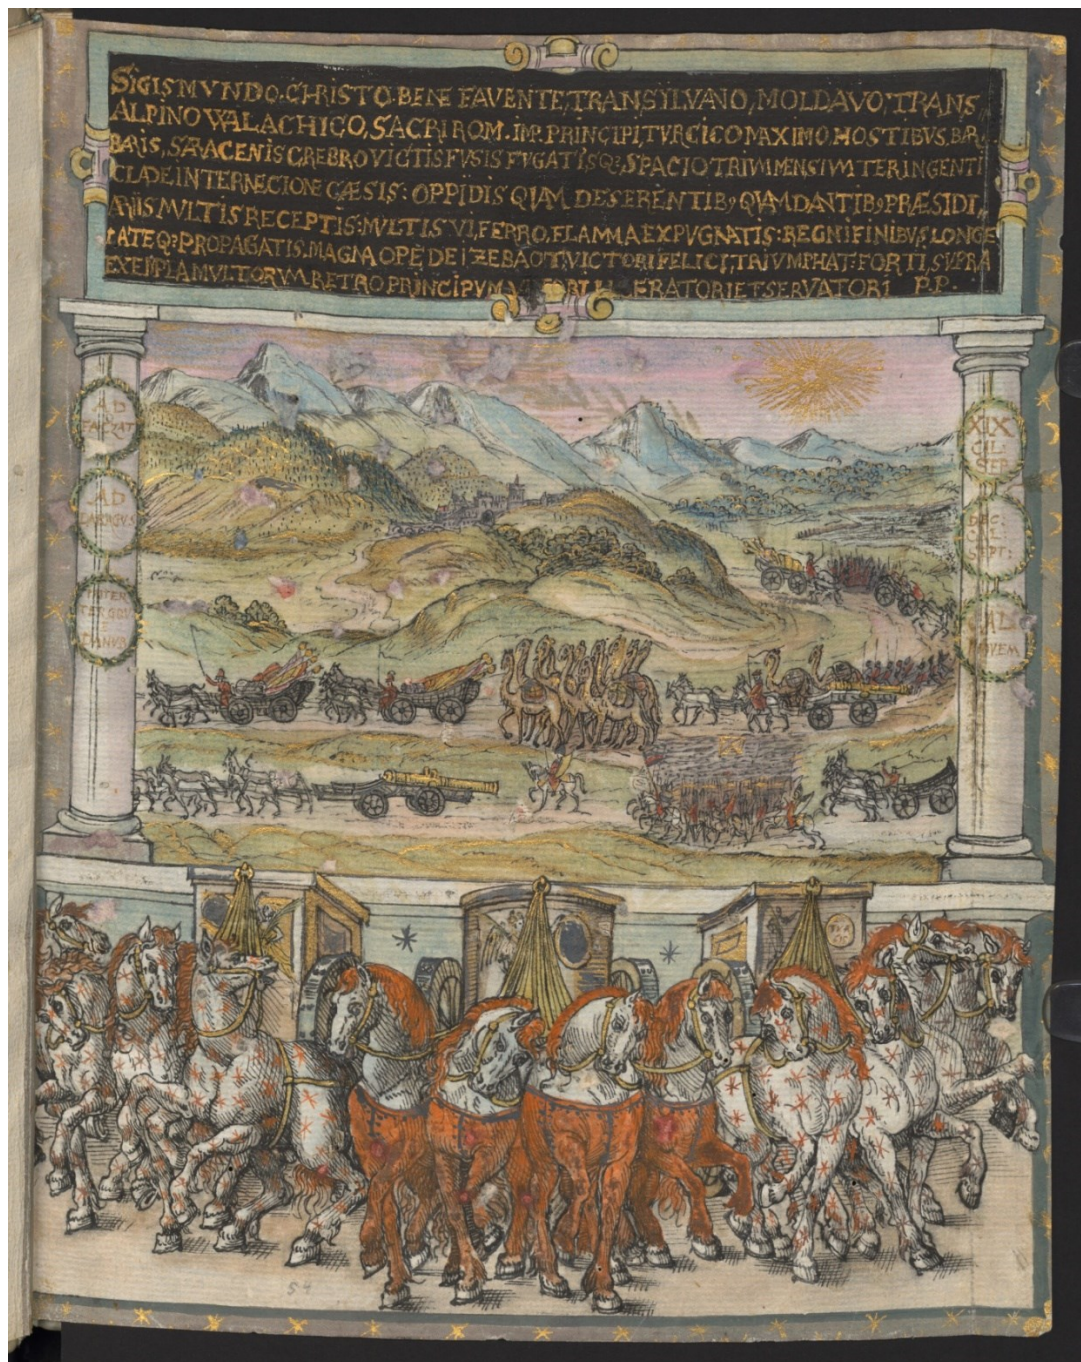 SIGISMVNDO.CHRISTO.BENE FAVENTE,TRANSYLVANO, MOLDAVO,TRANS,,
ALPINO VALACHICO, SACRI ROM. IMP. PRINCIPI, TVRCICO MAXIMO. HOSTIBVS. BAR,
BARIS, SARACENIS CREBRO VICTIS FVSIS FVGATISQ: SPACIO TRIVM MENSIVM TER INGENTI
CLADE INTERNECIONE CÆSIS: OPPIDIS QVAM DESERENTIB9 QVAM DANTIB9 PRÆSIDI,,
ARIIS MVLTIS RECEPTIS: MVLTIS VI, FERRO, FLAMMA EXPVGNATIS: REGNI FINIBVS LONGE
LATEQ: PROPAGATIS. MAGNA OPE DEI ZEBAOT. VICTORI FELICI, TRIVMPHAT: FORTI, SVPRA
EXEMPLA MVLTORVM RETRO PRINCIPVM ERATORI ET SERVATORI P.P.
AD
AD
XIX
CAL
SEP
SEPT:
AD
NOVEM
54